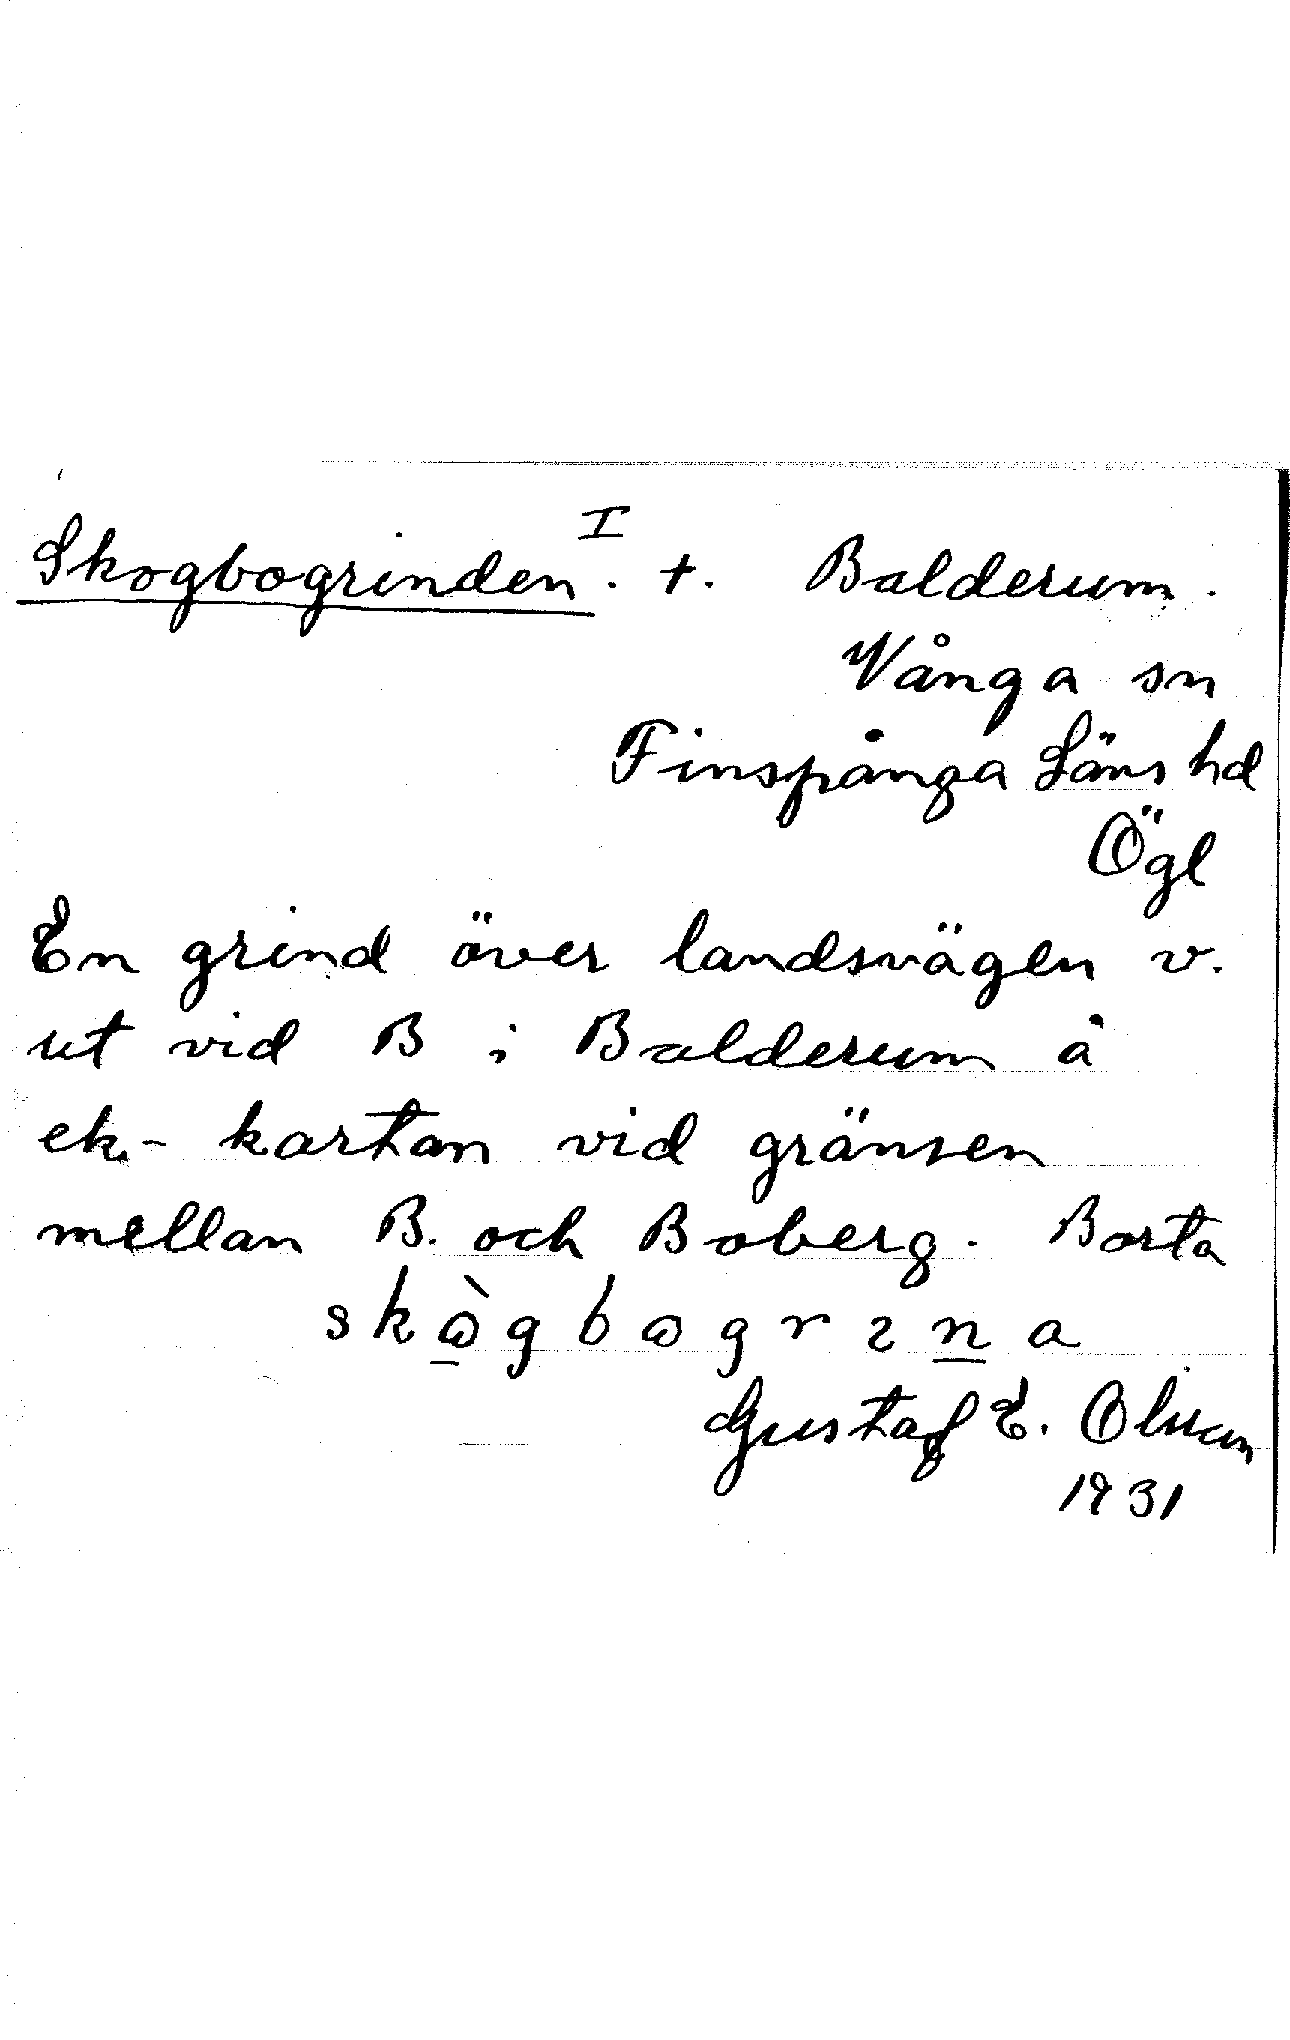 Skogbogrinden I. +. Balderum.
Vånga sn
Finspånga Läns hd
Ögl
En grind över landsvägen v.
ut vid B i Balderum å
ek. kartan vid gränsen
mellan B. och Boberg. Borta
Gustaf E. Olsson
1931